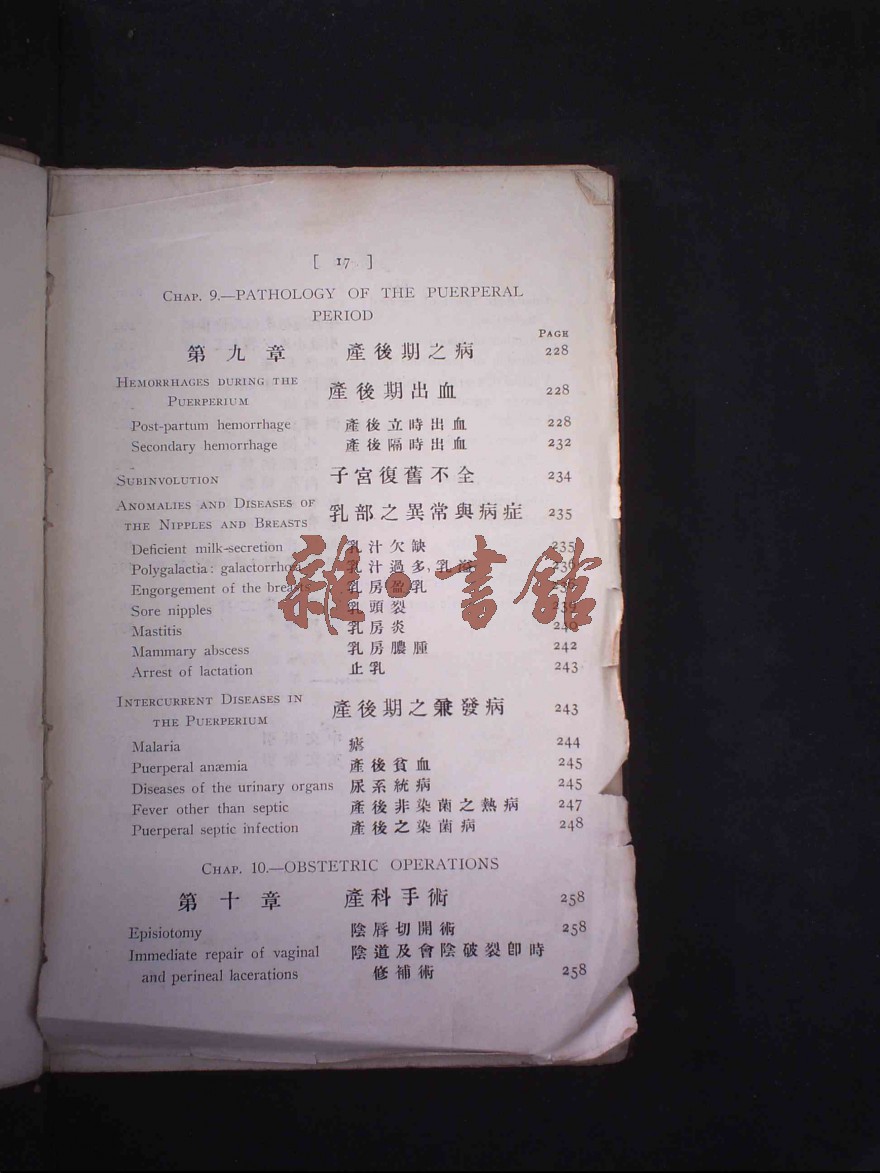 [ 17 ]
Chap. 9.—PATHOLOGY OF THE PUERPERAL
PERIOD
Page
第九章 產後期之病 228
Hemorrhages during the 產後期出血 228
Puerperium
Post-partum hemorrhage 產後立時出血 228
Secondary hemorrhage 產後隔時出血 232
Subinvolution 子宮復舊不全 234
Anomalies and Diseases of 乳部之異常與病症 235
the Nipples and Breasts
Deficient milk-secretion 乳汁欠缺 235
Polygalactia: galactorrhœa 乳汁過多, 乳溢 236
Engorgement of the breasts 乳房盈乳
Sore nipples 乳頭裂 239
Mastitis 乳房炎 240
Mammary abscess 乳房膿腫 242
Arrest of lactation 止乳 243
Intercurrent Diseases in 產後期之兼發病 243
the Puerperium
Malaria 瘧 244
Puerperal anæmia 產後貧血 245
Diseases of the urinary organs 尿系統病 245
Fever other than septic 產後非染菌之熱病 247
Puerperal septic infection 產後之染菌病 248
Chap. 10.—OBSTETRIC OPERATIONS
第十章 產科手術 258
Episiotomy 陰唇切開術 258
Immediate repair of vaginal 陰道及會陰破裂卽時
and perineal lacerations 修補術 258
雜·書館